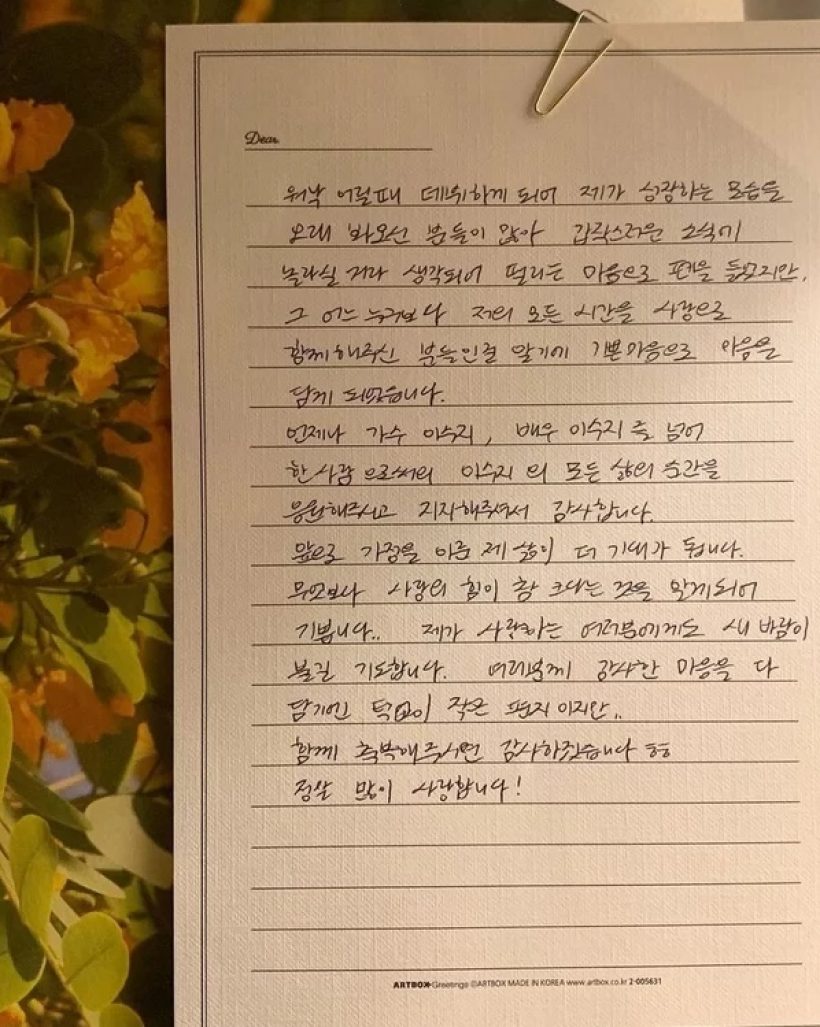 Dear
워낙 어릴때 데뷔하게 되어 제가 성장하는 모습을
오래 봐오신 분들이 많아 갑작스러운 소식에
놀라실 거라 생각되어 떨리는 마음으로 펜을 들었지만,
그 어느 누구보다 저의 모든 시간을 사랑으로
함께해주신 분들인걸 알기에 기쁜마음으로 마음을
담게 되었습니다.
언제나 가수 이수지, 배우 이수지를 넘어
한 사람으로써의 이수지의 모든 삶의 순간을
응원해주시고 지지해주셔서 감사합니다.
앞으로 가정을 이룬 제 삶이 더 기대가 됩니다.
무엇보다 사랑의 힘이 참 크다는 것을 알게되어
기쁩니다.. 제가 사랑하는 여러분에게도 새 바람이
불길 기도합니다. 여러분께 감사한 마음을 다
담기엔 턱없이 작은 편지이지만..
함께 축복해주시면 감사하겠습니다 ㅎㅎ
정말 많이 사랑합니다!
ARTBOX Greetings ©ARTBOX MADE IN KOREA www.artbox.co.kr 2-005631